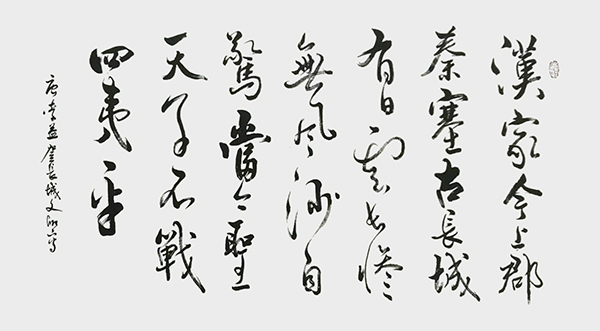 漢家今上郡
秦塞古長城
有日雲長惨
無风沙自
驚當今聖
天子不戰
四夷平
唐李益登長城文